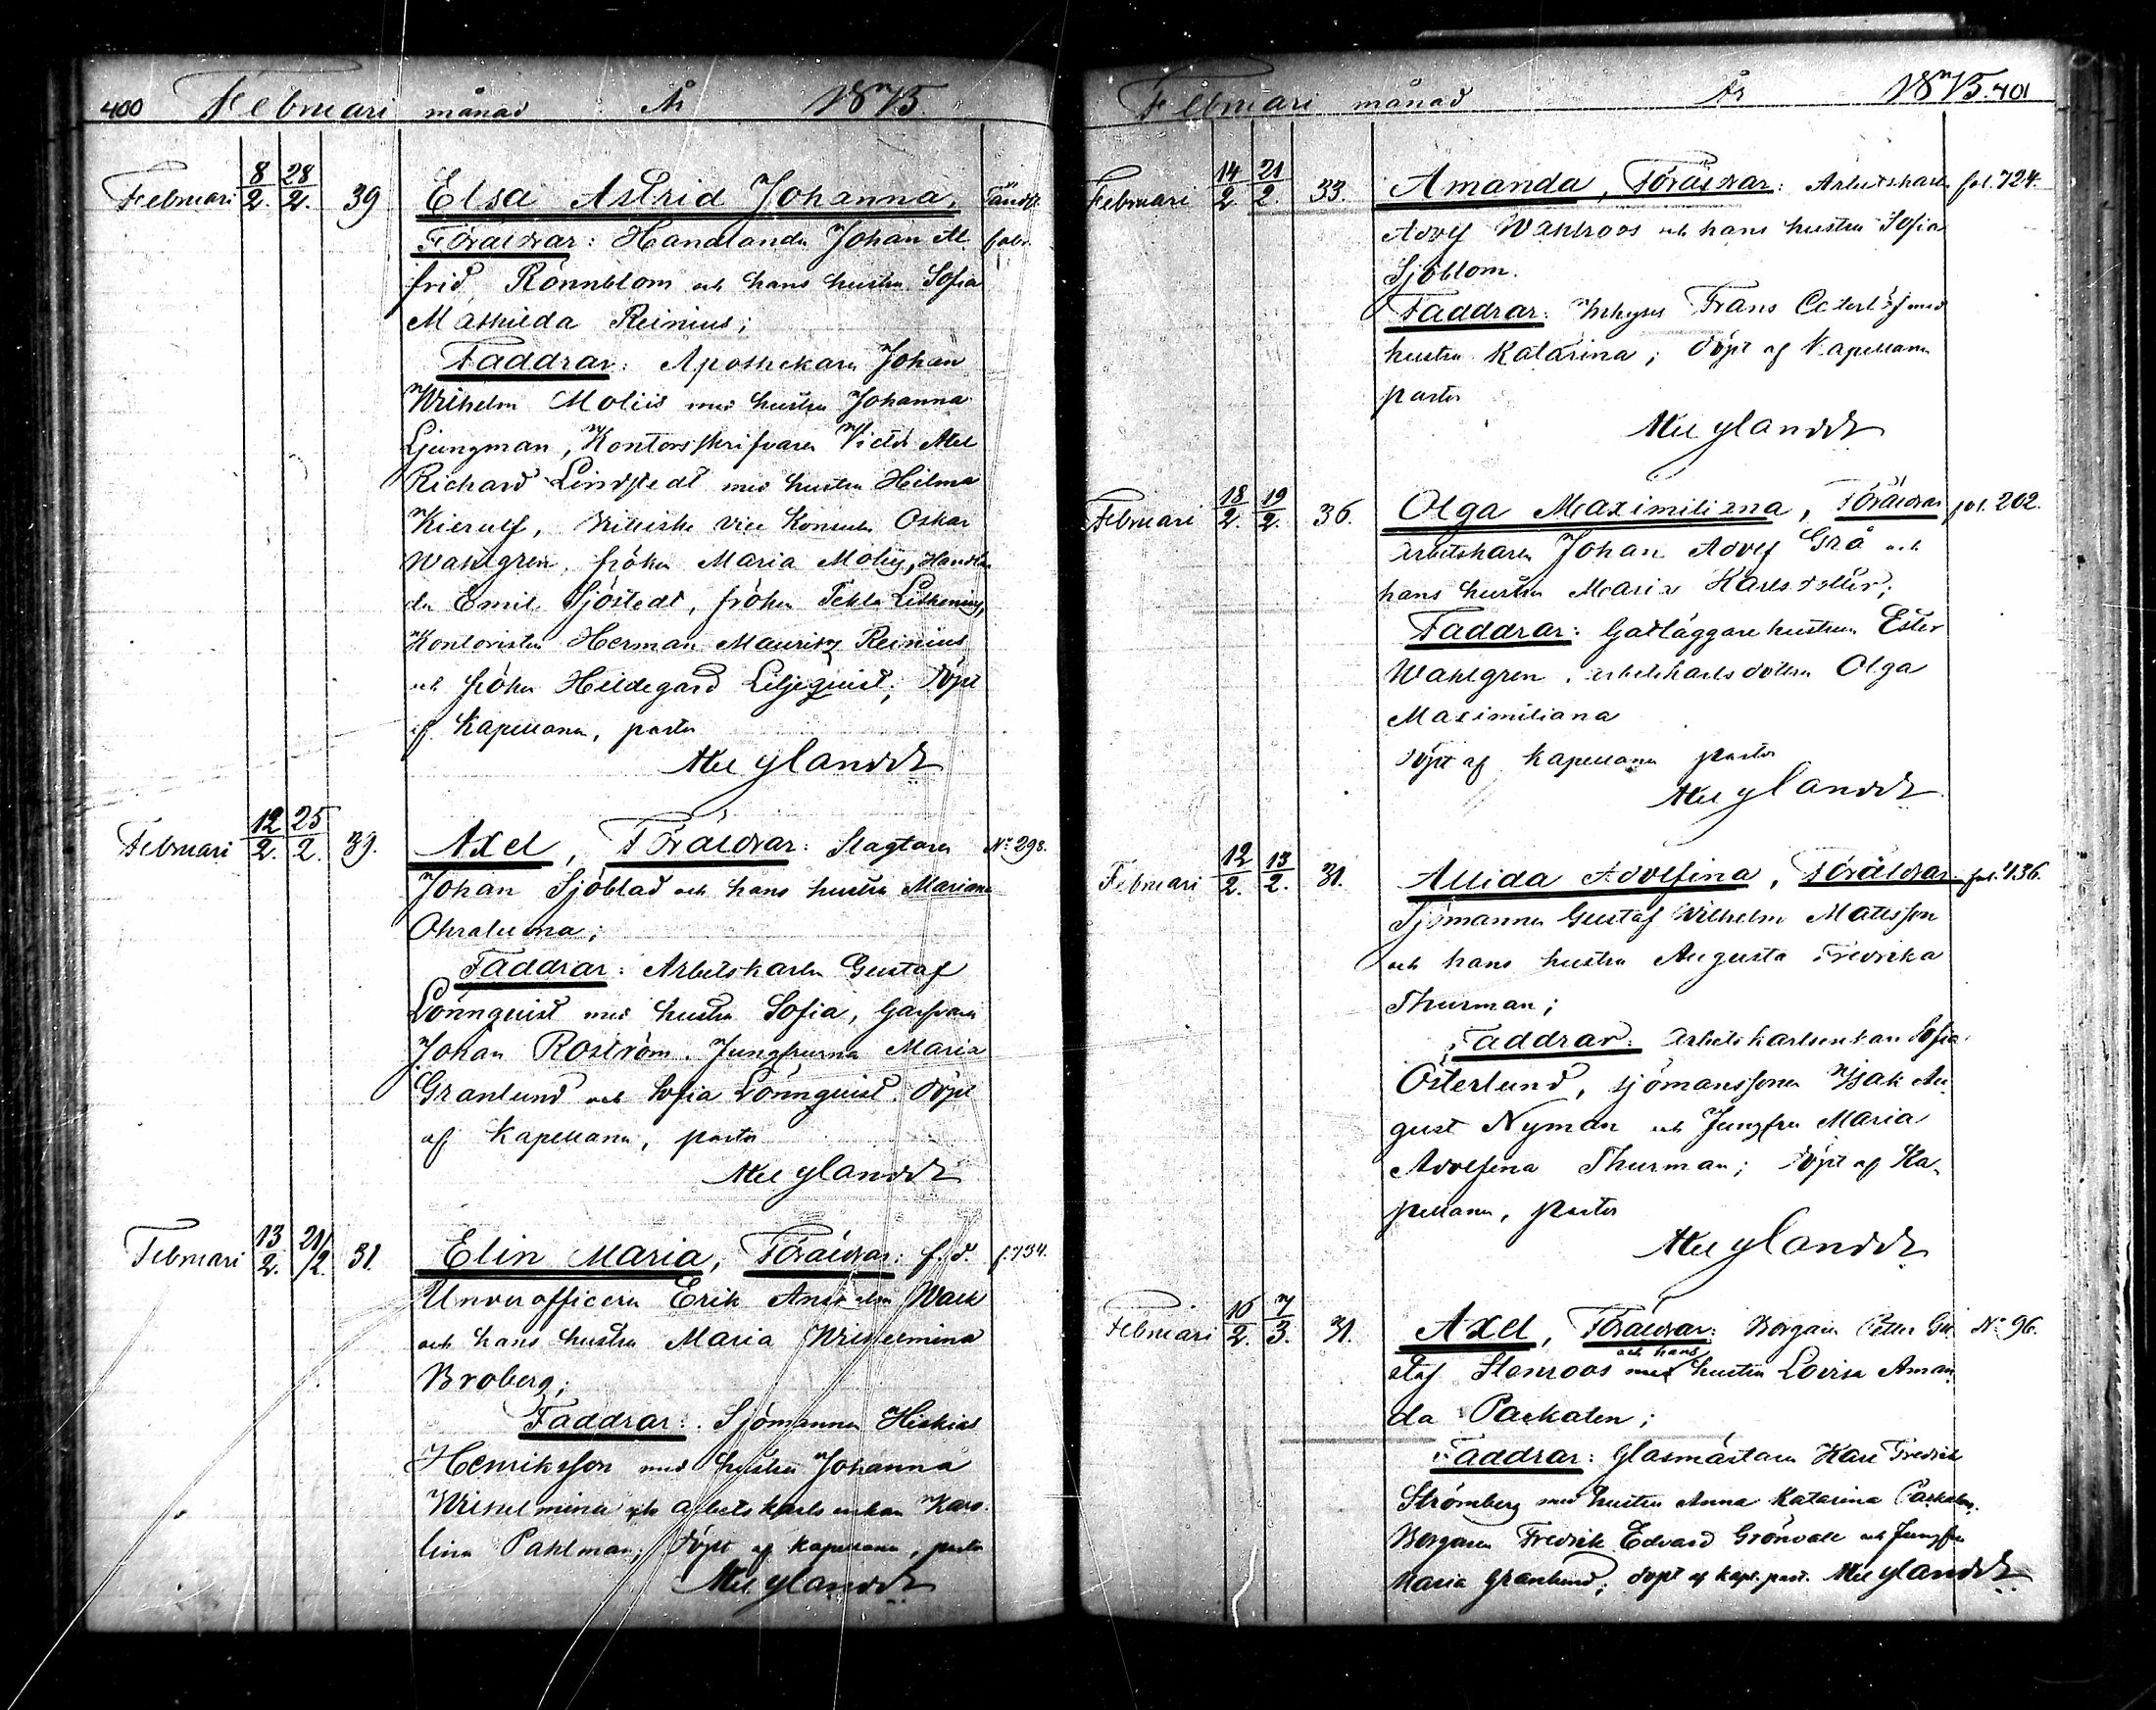 400 Februari månad År 1875.
Februari 8/2. 28/2. 39 Elsa Astrid Johanna, Tändst.
Föräldrar: Handlanden Johan Al fabr.
frid Rönnblom och hans hustru Sofia
Mathilda Reinius;
Faddrar: Apothekaren Johan
Wilhelm Moliis med hustru Johanna
Ljungman, Kontorsskrifvaren Victor Axel
Richard Lindstedt med hustru Hilma
Kierulf, vice Konsuln Oskar
Wahlgren, fröken Maria Moliis, Handlan
den Emil Sjöstedt, fröken Tekla
Kontoristen Herman Mauritz Reinius
och fröken Hildegard Liljequist; döpt
af Kapellanen, pastor
Mec Ylander
Februari 12/2. 25/2. 39. Axel, Föräldrar: Slagtaren No 298.
Johan Sjöblad och hans hustru Mariana
Ohraluoma;
Faddrar: Arbetskarlen Gustaf
Lönnquist med hustru Sofia, Garfvaren
Johan Roström, Jungfrurna Maria
Granlund och Sofia Lönnquist. döpt
af Kapellanen, pastor
Ylander
Februari 13/2. 21/2. 31. Elin Maria, Föräldrar: f. d. f. 734.
Underofficeren Erik Wall
och hans hustru Maria Wilhelmina
Broberg;
Faddrar: Sjömannen Hiskias
Henriksson med hustru Johanna
Wilhelmina och arbetskarls enkan Karo
lina Pahlman; döpt af Kapellanen, pastor
Ylander
Februari månad År 1875. 401
Februari 14/2 21/2. 33. Amanda, Föräldrar: Arbetskarlen fol. 724.
Adolf Wahlroos och hans hustru Sofia
Sjöblom.
Faddrar: Inhyses Frans Cederlöf med
hustru Katarina; döpt af Kapellanen
pastor
Ylander
Februari 18/2. 19/2. 36. Olga Maximiliana, Föräldrar fol. 202.
arbetskarlen Johan Adolf Grå och
hans hustru Maria Karlsdotter;
Faddrar: Gatläggare hustrun Ester
Wahlgren, arbetskarls dottren Olga
Maximiliana
döpt af Kapellanen pastor
Ylander
Februari 12/2. 13/2. 31. Alida Adolfina, Föräldrar fol. 136.
Sjömannen Gustaf Wilhelm Mattsson
och hans hustru Augusta Fredrika
Thurman;
Faddrar: arbetskarlsenkan Sofia
Österlund, sjömanssonen Isak Au
gust Nyman och Jungfru Maria
Adolfina Thurman; döpt af Ka
pellanen, pastor
Ylander
Februari 16/2. 7/3. 31. Axel, Föräldrar: Borgaren Petter Gu No 96.
staf Stenroos och hans hustru Lovisa Aman
da Packalen;
Faddrar: Glasmästaren Karl Fredrik
Strömberg med hustru Anna Katarina Packalen,
Borgaren Fredrik Edvard Grönvall och Jungfru
Maria Granlund; döpt af kapl. past. Ylander